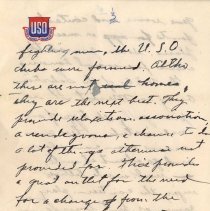 2
USO
fighting men, the U.S.O.
clubs were formed. Altho
there are not real homes,
they are the next best. They
provide relaxation, association,
a rendezvous, a chance to do
a lot of things otherwise not
provided for. This provides
a good outlet for the need
for a change from the